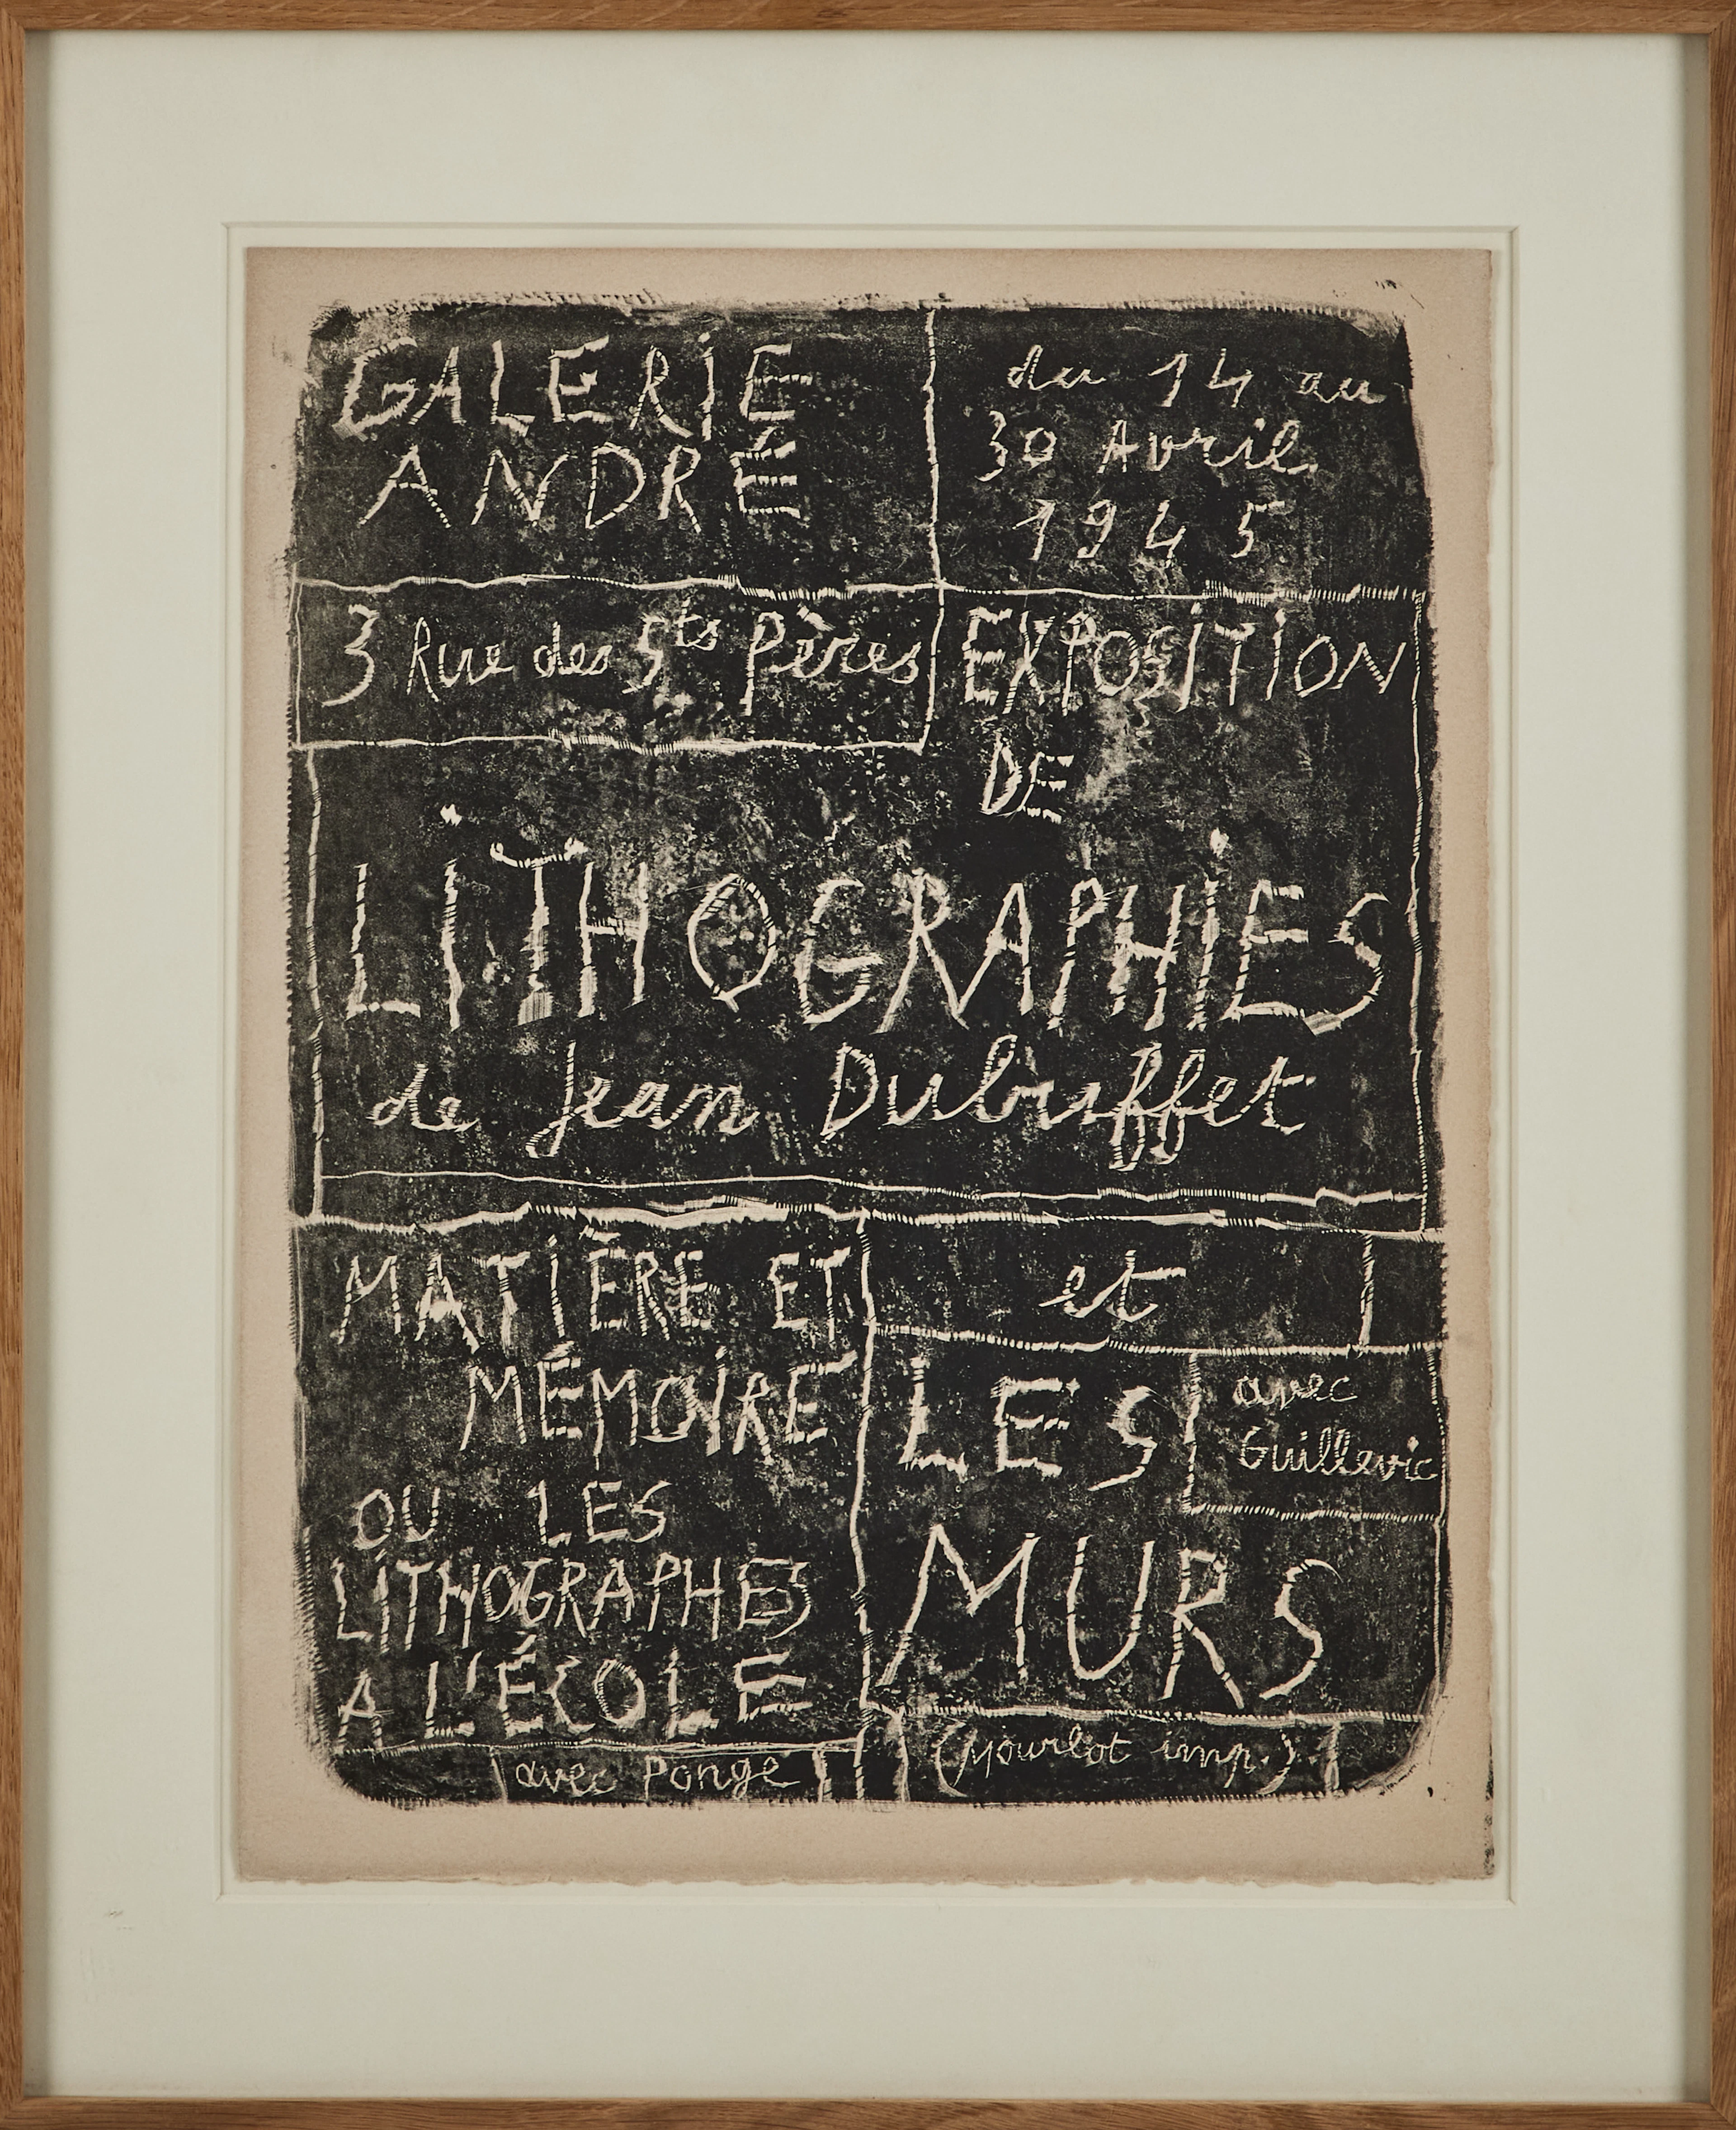 GALERIE
ANDRÉ
du 14 au
30 Avril
1945
3 Rue des Sts Pères
EXPOSITION
DE
LITHOGRAPHIES
de Jean Dubuffet
MATIÈRE ET
MÉMOIRE
OU LES
LITHOGRAPHES
A L'ÉCOLE
avec Ponge
et
LES
avec
Guillevic
MURS
(Mourlot imp.)